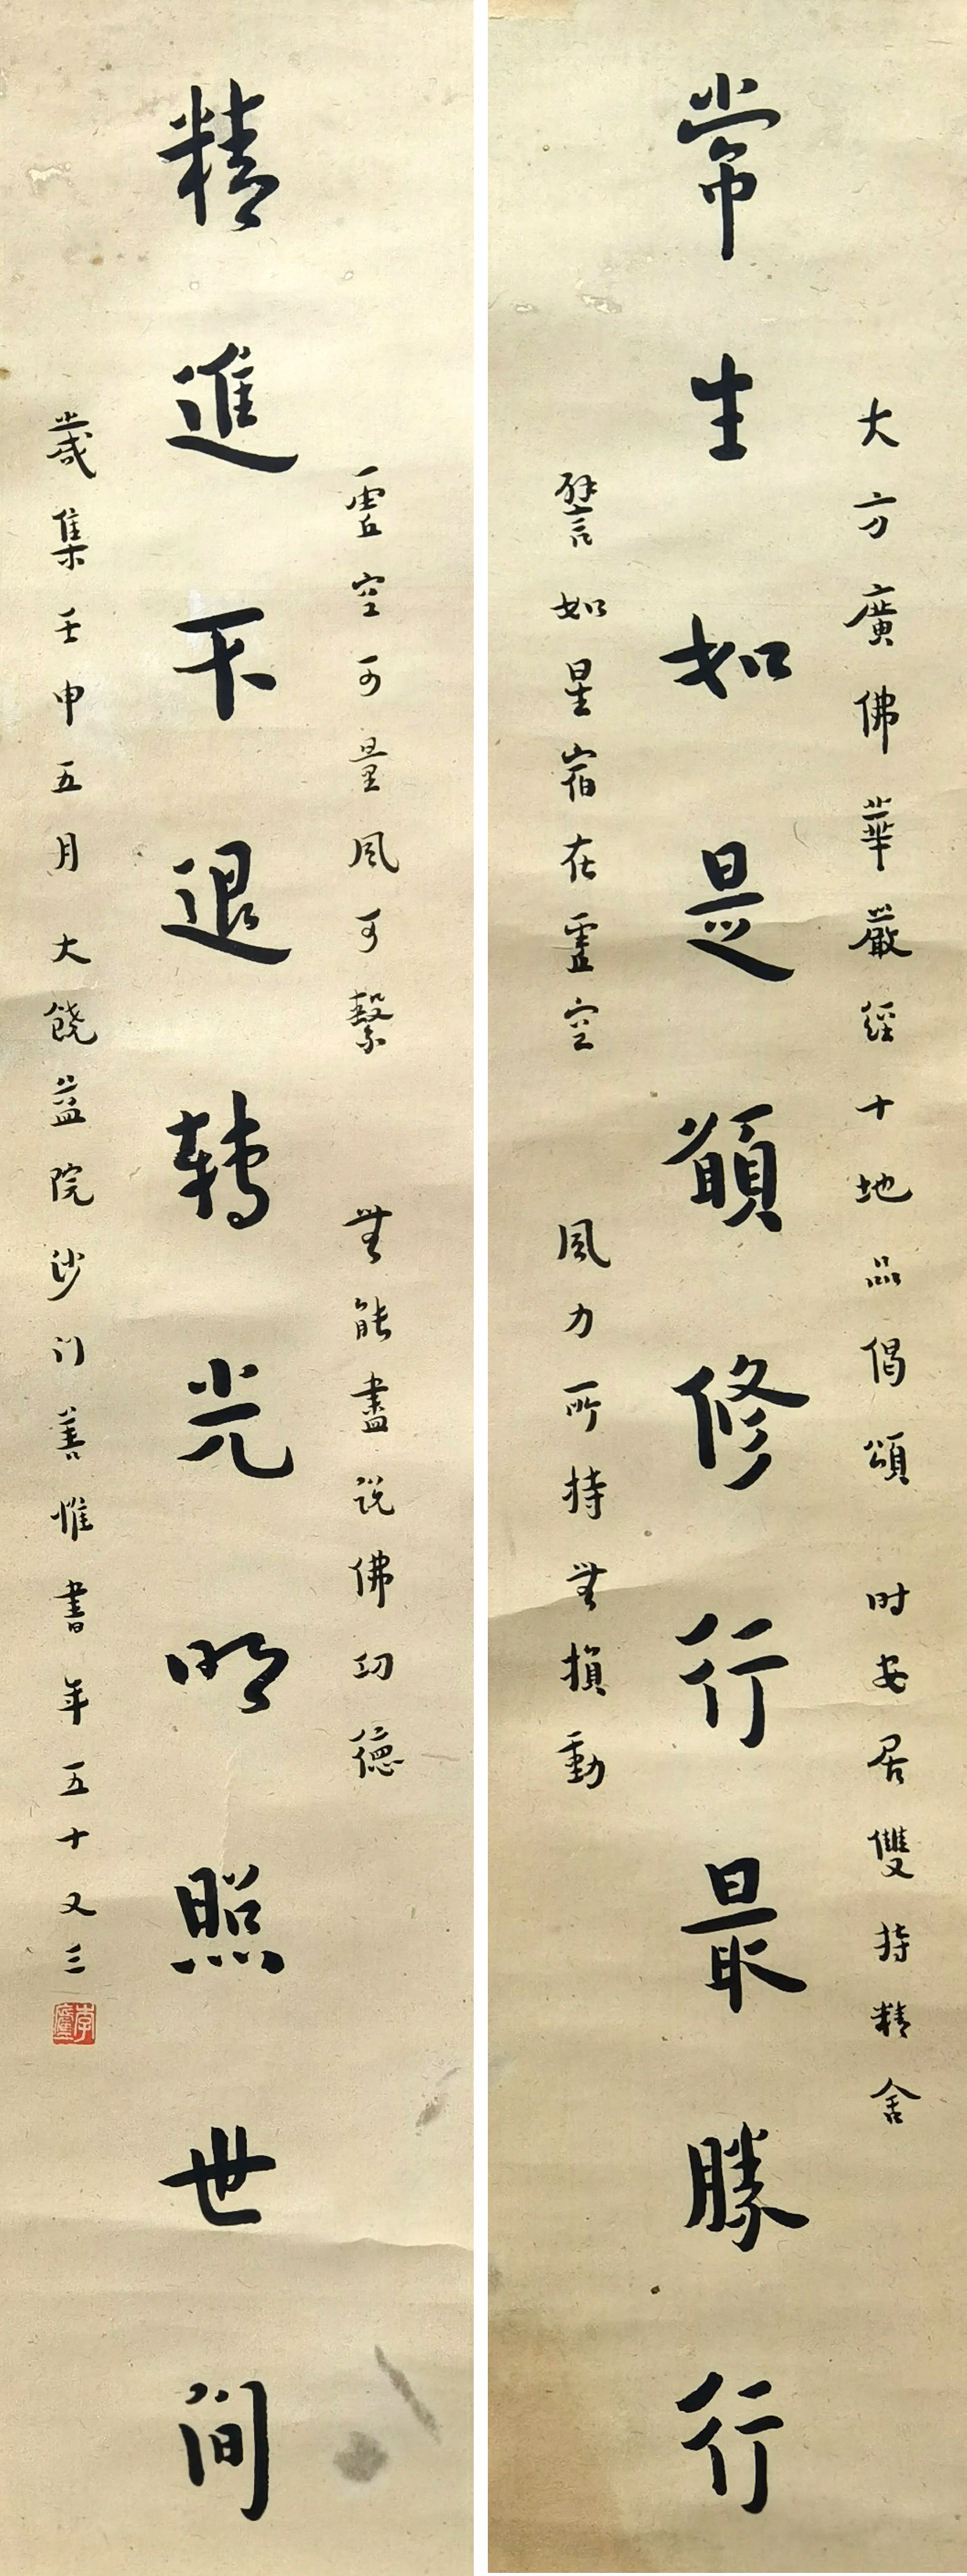 大方廣佛華嚴經十地品偈頌 时安居雙持精舍
常生如是願修行最勝行
譬如星宿在虛空 風力所持無損動
虛空可量風可繫 無能盡説佛功德
精進不退轉光明照世間
歲集壬申五月 大饒益院沙门善惟書年五十又三
李廬